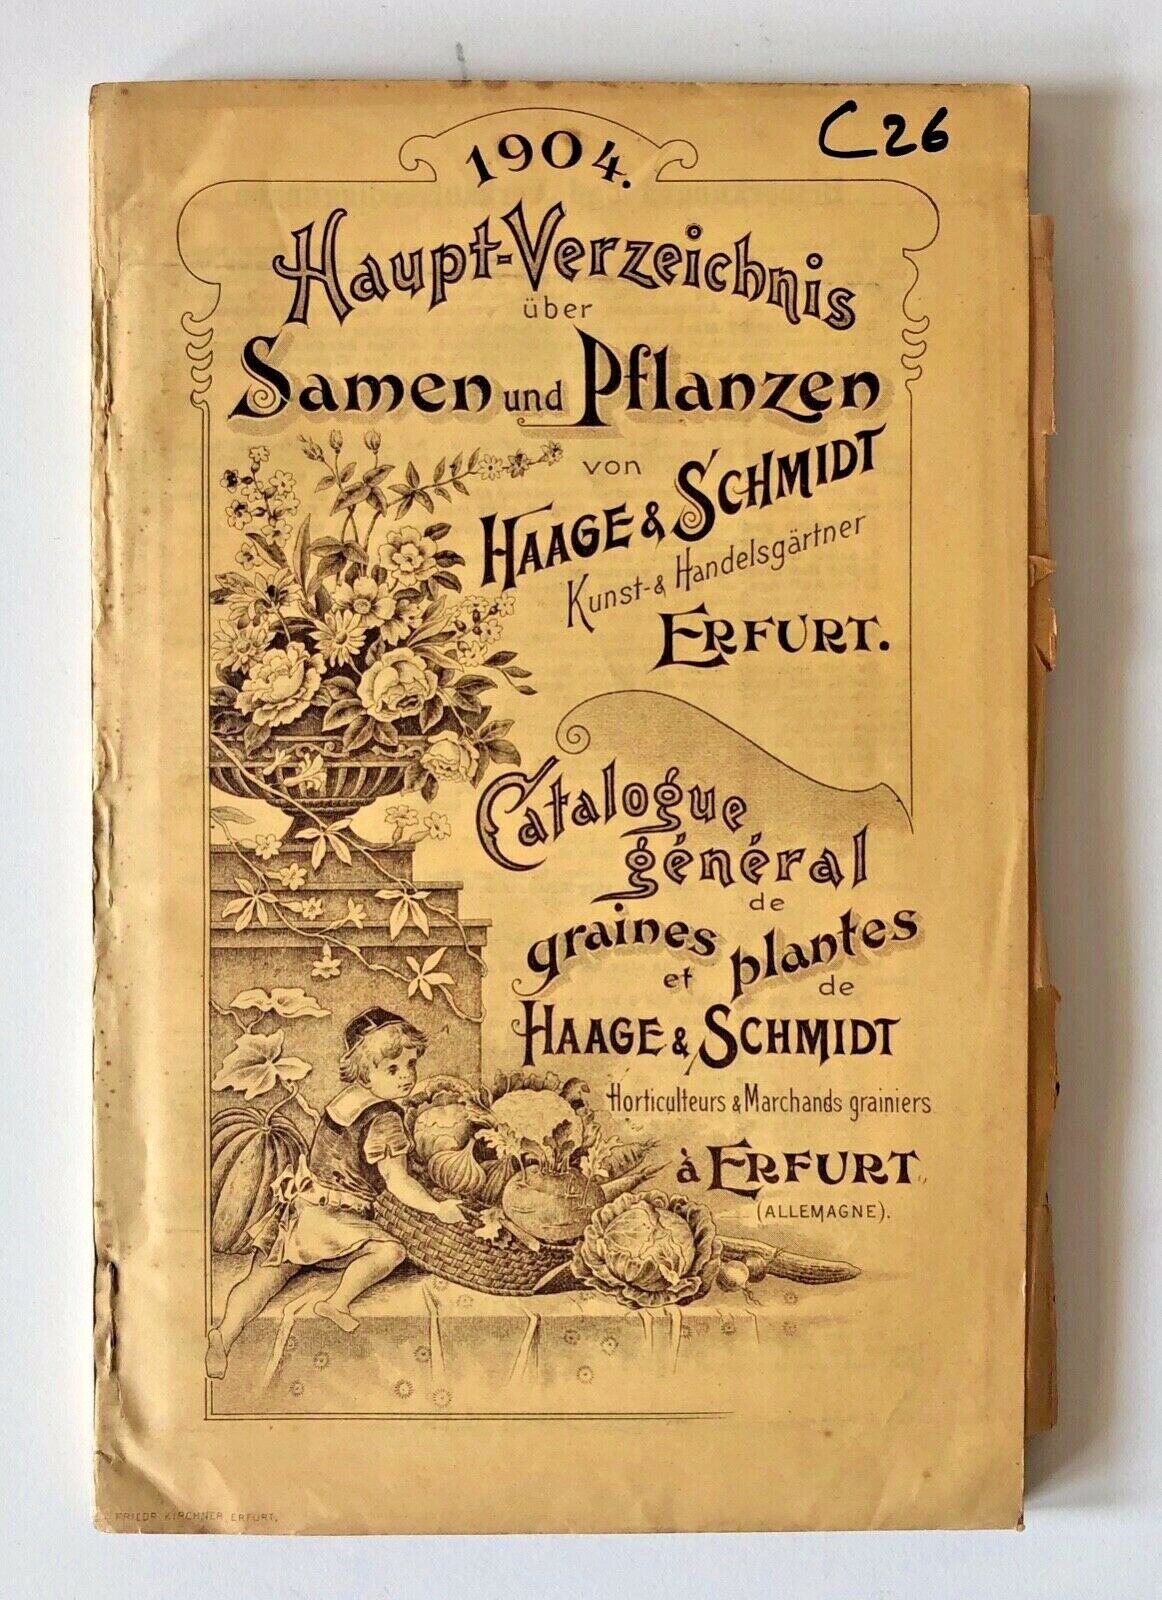 C26
1904.
Haupt-Verzeichnis
über
Samen und Pflanzen
von
HAAGE & SCHMIDT
Kunst- & Handelsgärtner
ERFURT.
Catalogue
général
de
graines
et plantes
de
HAAGE & SCHMIDT
Horticulteurs & Marchands grainiers
à ERFURT
(ALLEMAGNE).
FRIEDR KIRCHNER, ERFURT.